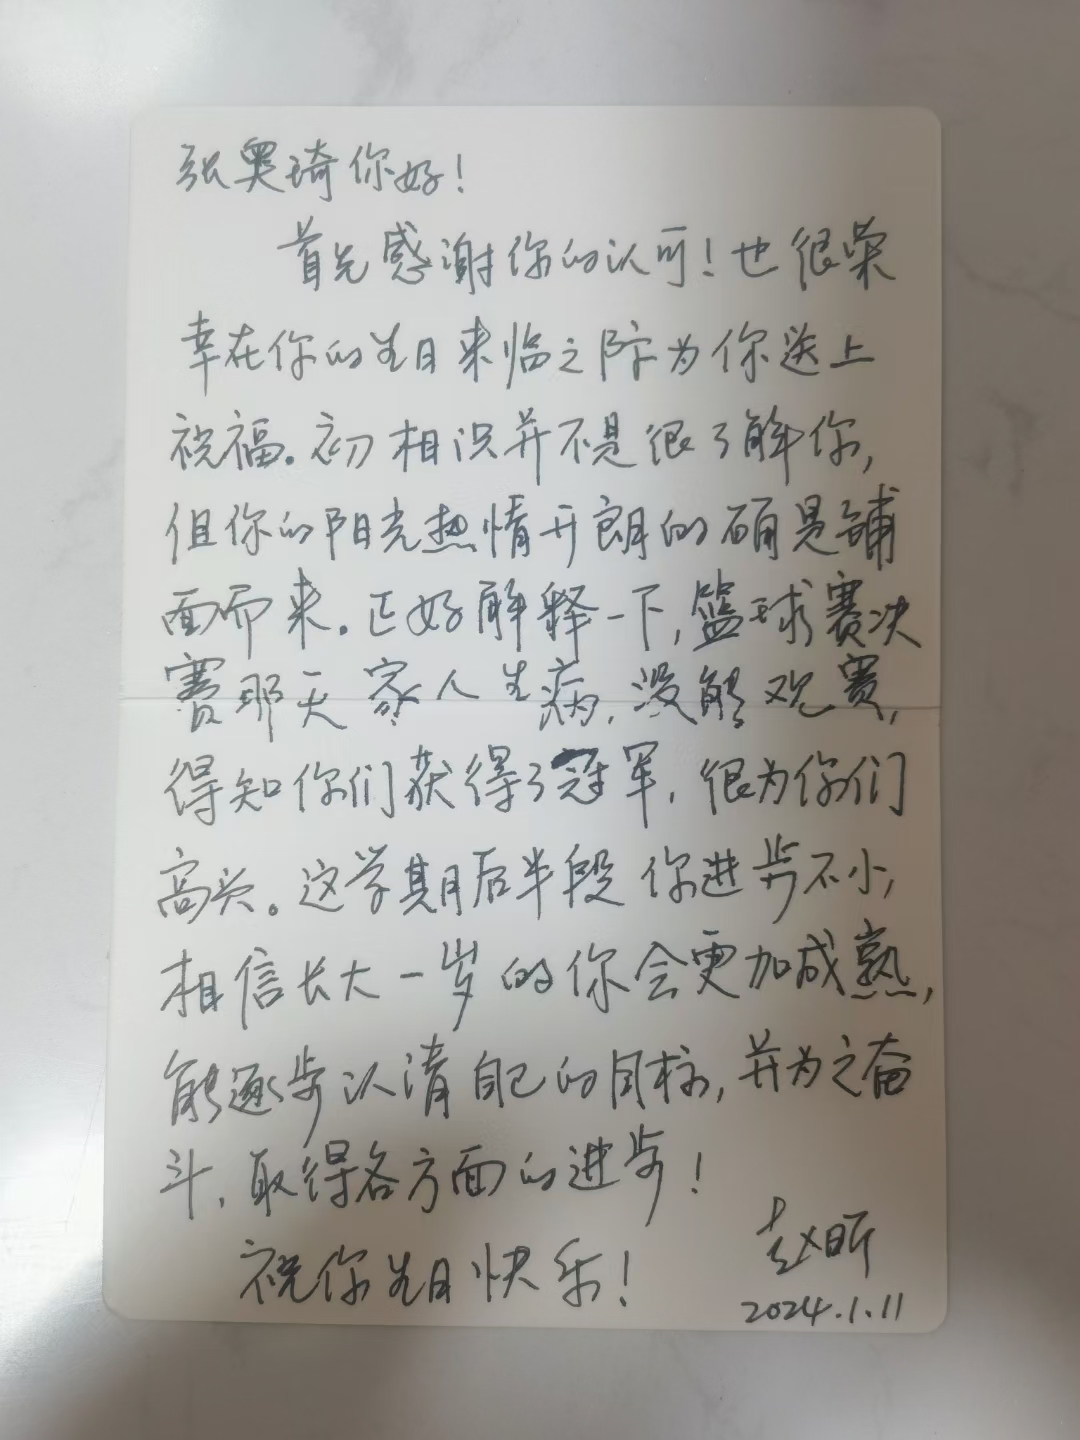 张奥琦你好！
首先感谢你的认可！也很荣
幸在你的生日来临之际为你送上
祝福。初相识并不是很了解你，
但你的阳光热情开朗的确是铺
面而来。正好解释一下，篮球赛决
赛那天家人生病，没能观赛，
得知你们获得了冠军，很为你们
高兴。这学期后半段你进步不小，
相信长大一岁的你会更加成熟，
能逐步认清自己的目标，并为之奋
斗，取得各方面的进步！
祝你生日快乐！
赵昕
2024.1.11